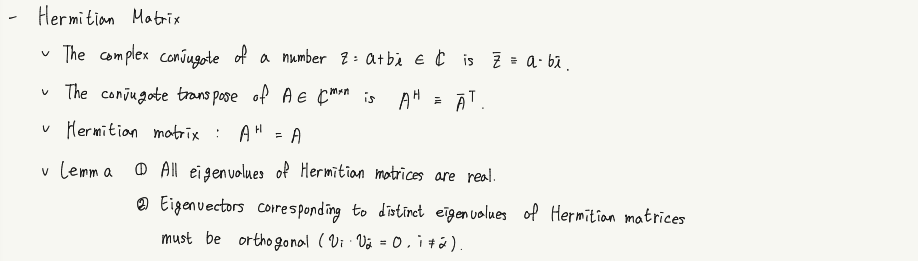 - Hermitian Matrix
∨ The complex conjugate of a number z = a+bi ∈ ℂ is z̅ = a-bi.
∨ The conjugate transpose of A ∈ ℂᵐˣⁿ is Aᴴ ≡ A̅ᵀ.
∨ Hermitian matrix : Aᴴ = A
∨ Lemma ① All eigenvalues of Hermitian matrices are real.
② Eigenvectors corresponding to distinct eigenvalues of Hermitian matrices
must be orthogonal (vᵢ · vⱼ = 0, i ≠ j).